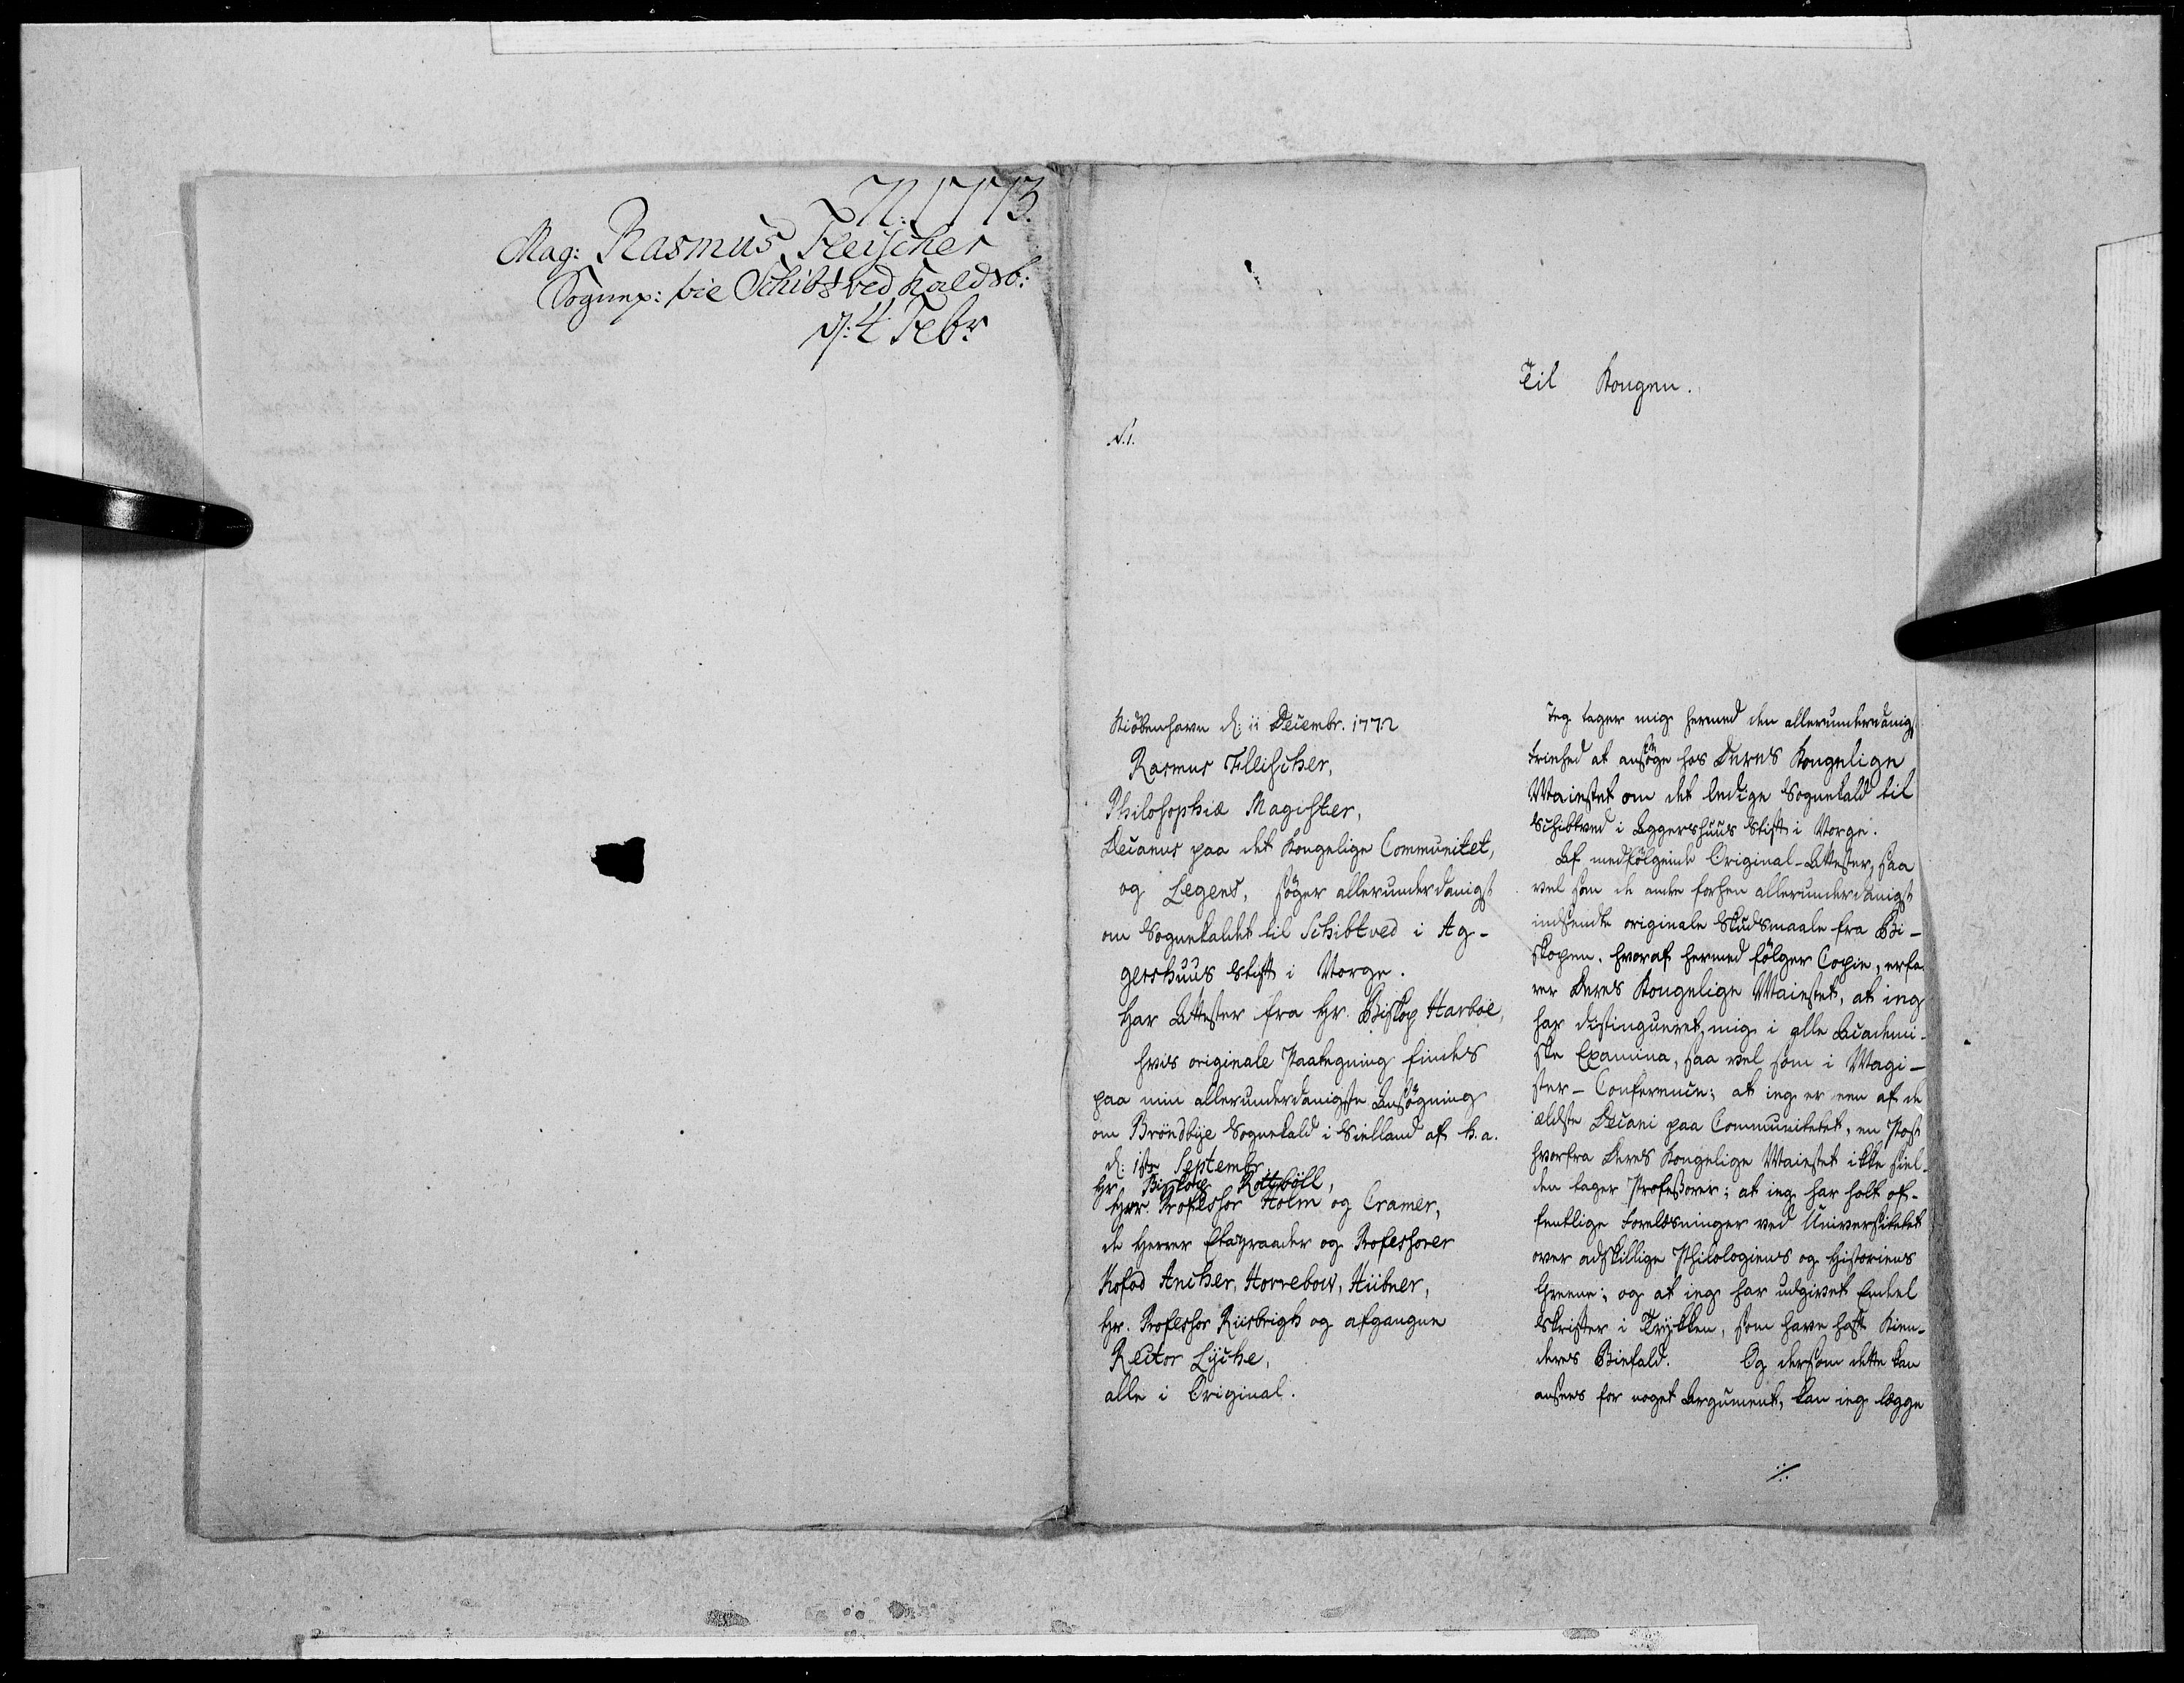 Mag: Rasmus Fleischer
Sognep: til Schibtved Kaldsb:
d: 4 Febr
Til Kongen.
N.1.
Kiöbenhavn d: 11 Decembr. 1772
Rasmus Fleischer,
Philosophiæ Magister,
Decanus paa det Kongelige Communitet,
og Legens, söger allerunderdanigst
om Sognekaldet til Schibtved i Ag-
gershuus Stift i Norge.
Har Attester fra Hr. Biskop Harboe,
hvis originale Paategning findes
paa min allerunderdanigste Ansögning
om Bröndbye Sognekald i Sielland af h.a.
d: 1ste Septembr.
Hr. Biskop Rottböll,
Herr Professor Holm og Cramer,
de Herrer Etatzraader og Professorer
Kofod Ancher, Horrebow, Hübner,
Hr. Professor Riisbrigh og afgangne
Rector Lyche,
alle i Original.
Jeg tager mig hermed den allerunderdanig
Friehed at ansöge hos Deres Kongelige
Maiestet om det ledige Sognekald til
Schibtved i Aggershuus Stift i Norge.
Af medfölgende Original-Attester, saa
vel som de andre forhen allerunderdanigst
indsendte originale Skudsmaale fra Bi-
skopen, hvoraf hermed fölger Copie, erfa-
rer Deres Kongelige Maiestet, at ieg
har distingueret mig i alle Academi-
ske Examina, saa vel som i Magi-
ster-Conferencen; at ieg er een af de
ældste Decani paa Communitetet, en Post
hvorfra Deres Kongelige Maiestet ikke siel-
den tager Professorer; at ieg har holt of-
fentlige Forelæsninger ved Universitetet
over adskillige Philologiens og Historiens
Greene; og at ieg har udgivet Endeel
Skrifter i Trykken, som have haft Kien-
deres Biefald. Og dersom dette kan
ansees for noget Argument, kan ieg lægge